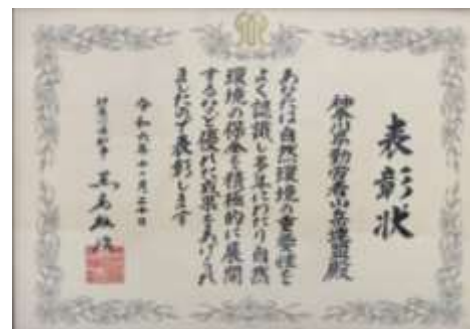 表彰状
神奈川県勤労者山岳連盟殿
あなたは自然環境の重要性を
よく認識し多年にわたり自然
環境の保全を積極的に展開
するなど優れた成果をあげられ
ましたので表彰します
令和六年十一月二十日
神奈川県知事 黒岩祐治